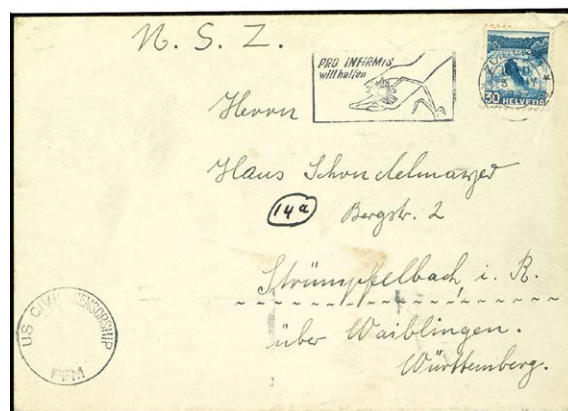 N. S. Z.
PRO INFIRMIS
will helfen
30 HELVETIA
Herrn
Hans
14a
Bergstr. 2
Strümpfelbach, i. R.
über Waiblingen.
Württemberg.
US CIVIL CENSORSHIP
FFM